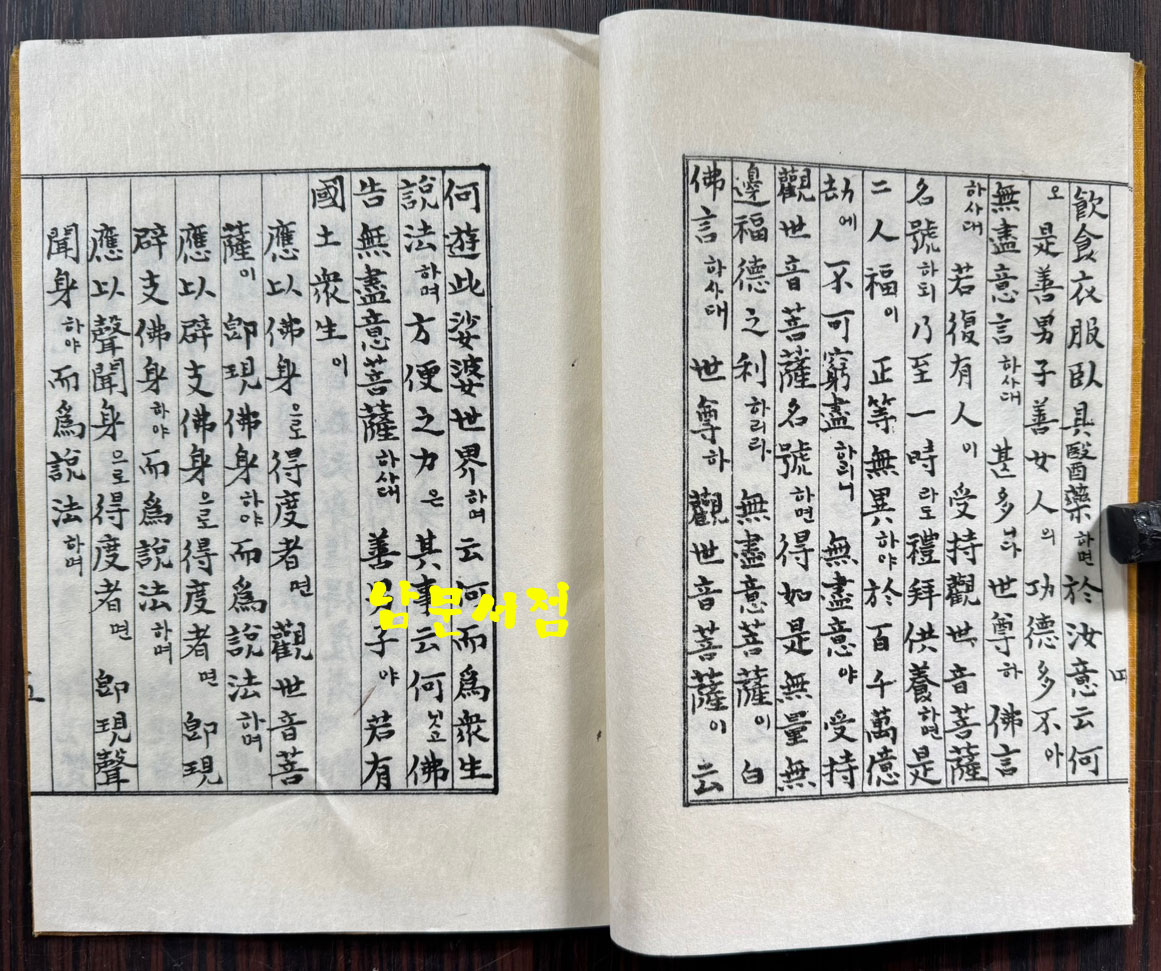 飮食衣服臥具醫藥하면於汝意云何
오 是善男子善女人의 功德多不아
無盡意言하사대 甚多니다世尊하 佛言
하사대 若復有人이 受持觀世音菩薩
名號하되乃至一時라도禮拜供養하면是
二人福이 正等無異하야於百千萬億
劫에 不可窮盡하리니 無盡意야 受持
觀世音菩薩名號하면得如是無量無
邊福德之利하리라 無盡意菩薩이白
佛言하사대 世尊하 觀世音菩薩이云
四
何遊此娑婆世界하며云何而爲衆生
說法하며方便之力은其事云何닛고佛
告無盡意菩薩하사대 善男子야若有
國土衆生이
應以佛身으로得度者면 觀世音菩
薩이 卽現佛身하야而爲說法하며
應以辟支佛身으로得度者면 卽現
辟支佛身하야而爲說法하며
應以聲聞身으로得度者면 卽現聲
聞身하야而爲說法하며
五
남문서점